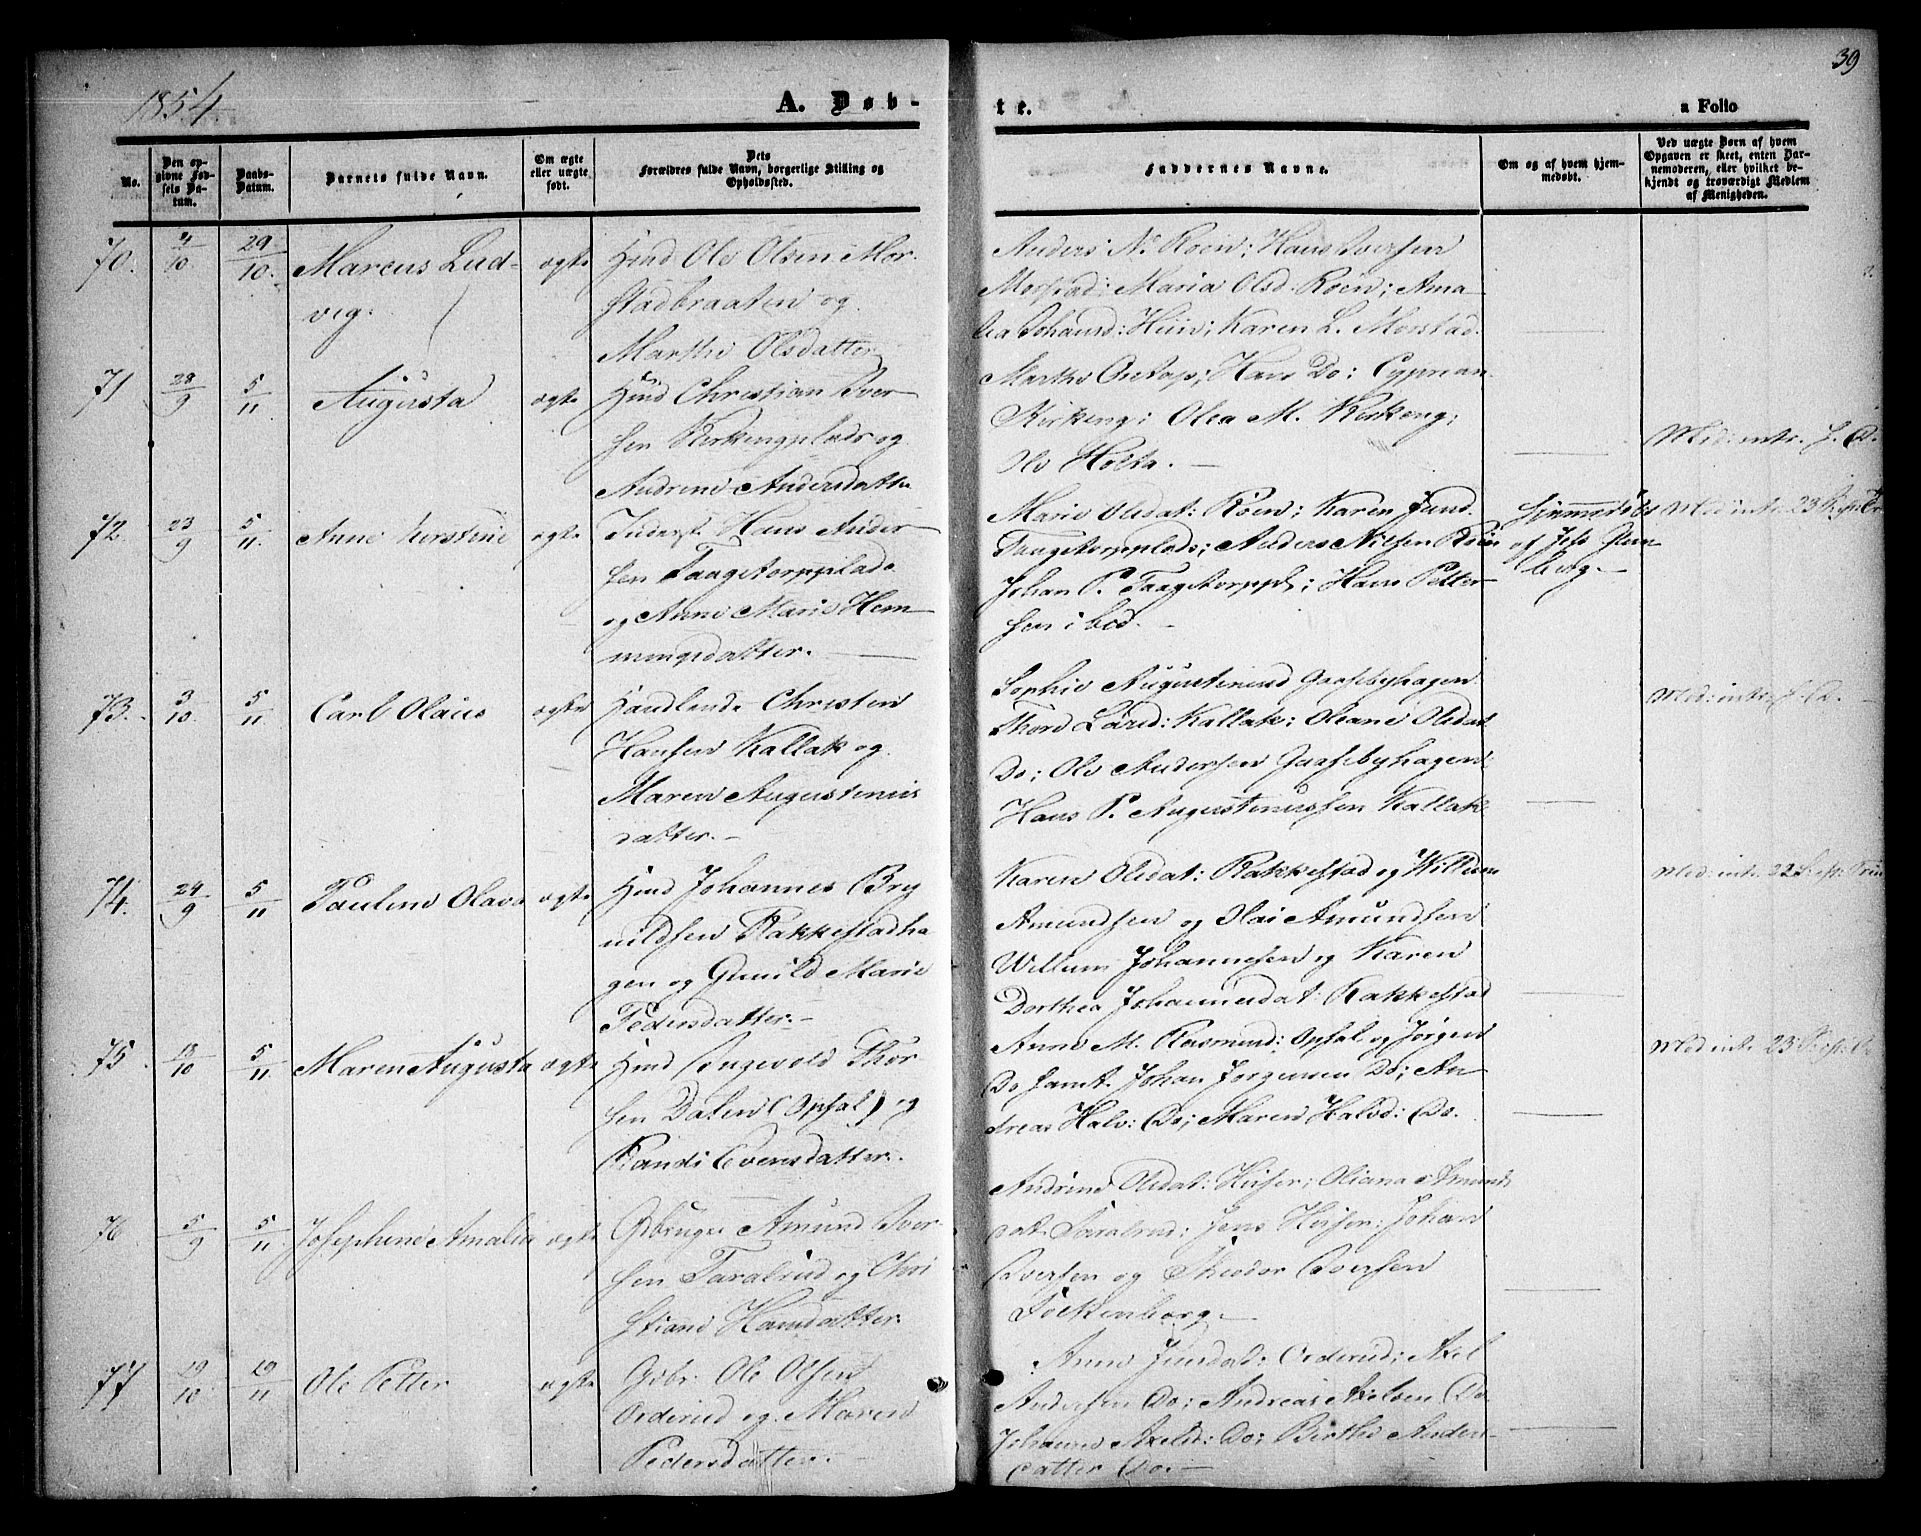 39
1854.
A. Døb-
te.
a Folio
No.
Den op-
givne Fød-
sels Da-
tum.
Daabs-
Datum.
Barnets fulde Navn.
Om ægte
eller uægte
født.
Dets
Forældres fulde Navn, borgerlige Stilling og
Opholdssted.
Faddernes Navne.
Om og af hvem hjem-
medøbt.
Ved uægte Børn af hvem
Opgaven er skeet, enten Bar-
nemoderen, eller hvilket be-
kjendt og troværdigt Medlem
af Menigheden.
70. 4/10 29/10. Marcus Lud-
vig.
ægte
Huusmd Ole Olsen Mor-
stadbraaten og
Marthe Olsdatter
Anders N. Roen; Hans Iversen
Morstad; Maria Olsd. Roen; Ama-
lia Johansd: Huin; Karen L. Morstad.
71 28/9 5/11 Augusta
ægte
Huusmd Christian Iver
sen Kirkengplads og
Andrine Andersdatter
Marthe Do; Hans Do; Cyprian
Kirkeng; Olea M. Kirkeng;
Ole Holta.
Mod: intr. s. D.
72. 23/9 5/11. Anne Kirstine
ægte
Inderst Hans Ander
sen Taagetorpplads
og Anne Marie Hem
mingsdatter.
Marie Olsdat: Roen; Karen Gund.
Taagetorpplads; Anders Nilsen Roen
Johan P. Taagetorppl; Hans Petter
sen ibid.
Hjemmedøbt
af Jfo
berg.
Mod: intr. 23
73. 3/10. 5/11 Carl Olaus
ægte
Handlende Christen
Hansen Kallak og
Maren Augustinius
datter.
Sophie Augustinusd Gaasebyhagen
Thord Larsd: Kallak; Oleane Olsdat
Do; Ole Andersen Gaasebyhagen
Hans P. Augustinussen Kallak
Mod: intr. s. D.
74. 24/9 5/11 Pauline Olava
ægte
Huusmd Johannes Bry
nildsen Rakkestadha
gen og Gunild Marie
Pedersdatter.
Karen Olsdat: Rakkestad og Willum
Amundsen og Olai Amundsen
Willum Johannesen og Karen
Dorthea Johannesdat: Rakkestad
Mod: intr. 22 S. p. Trin
75. 13/10 5/11. Maren Augusta
ægte
Huusmd Ingevold Thor
sen Dalen (Opsal) og
Randi Evensdatter.
Anne M. Rasmusd: Opsal og Jørgen
Do samt Johan Jørgensen Do; An
dreas Halv: Do; Maren Halvd: Do.
Mod: intr. 23 S. p.
76 5/9 5/11 Josephine Amalia
ægte
Gbruger Amund Iver
sen Taralrud og Chri
stiane Hansdatter
Andrine Olsdat: Huser; Oliana Amunds
dat Taralrud; Jens Huser; Johan
Iversen og Theodor Iversen
Sockenberg.
77 19/10 19/11 Ole Petter
ægte
Gbr: Ole Olsen
Orderud og Maren
Pedersdatter.
Anne Jensdat: Orderud; Axel
Andersen Do; Andreas Axelsen Do
Johanne Axelsd: Do; Birthe Anders
datter Do.